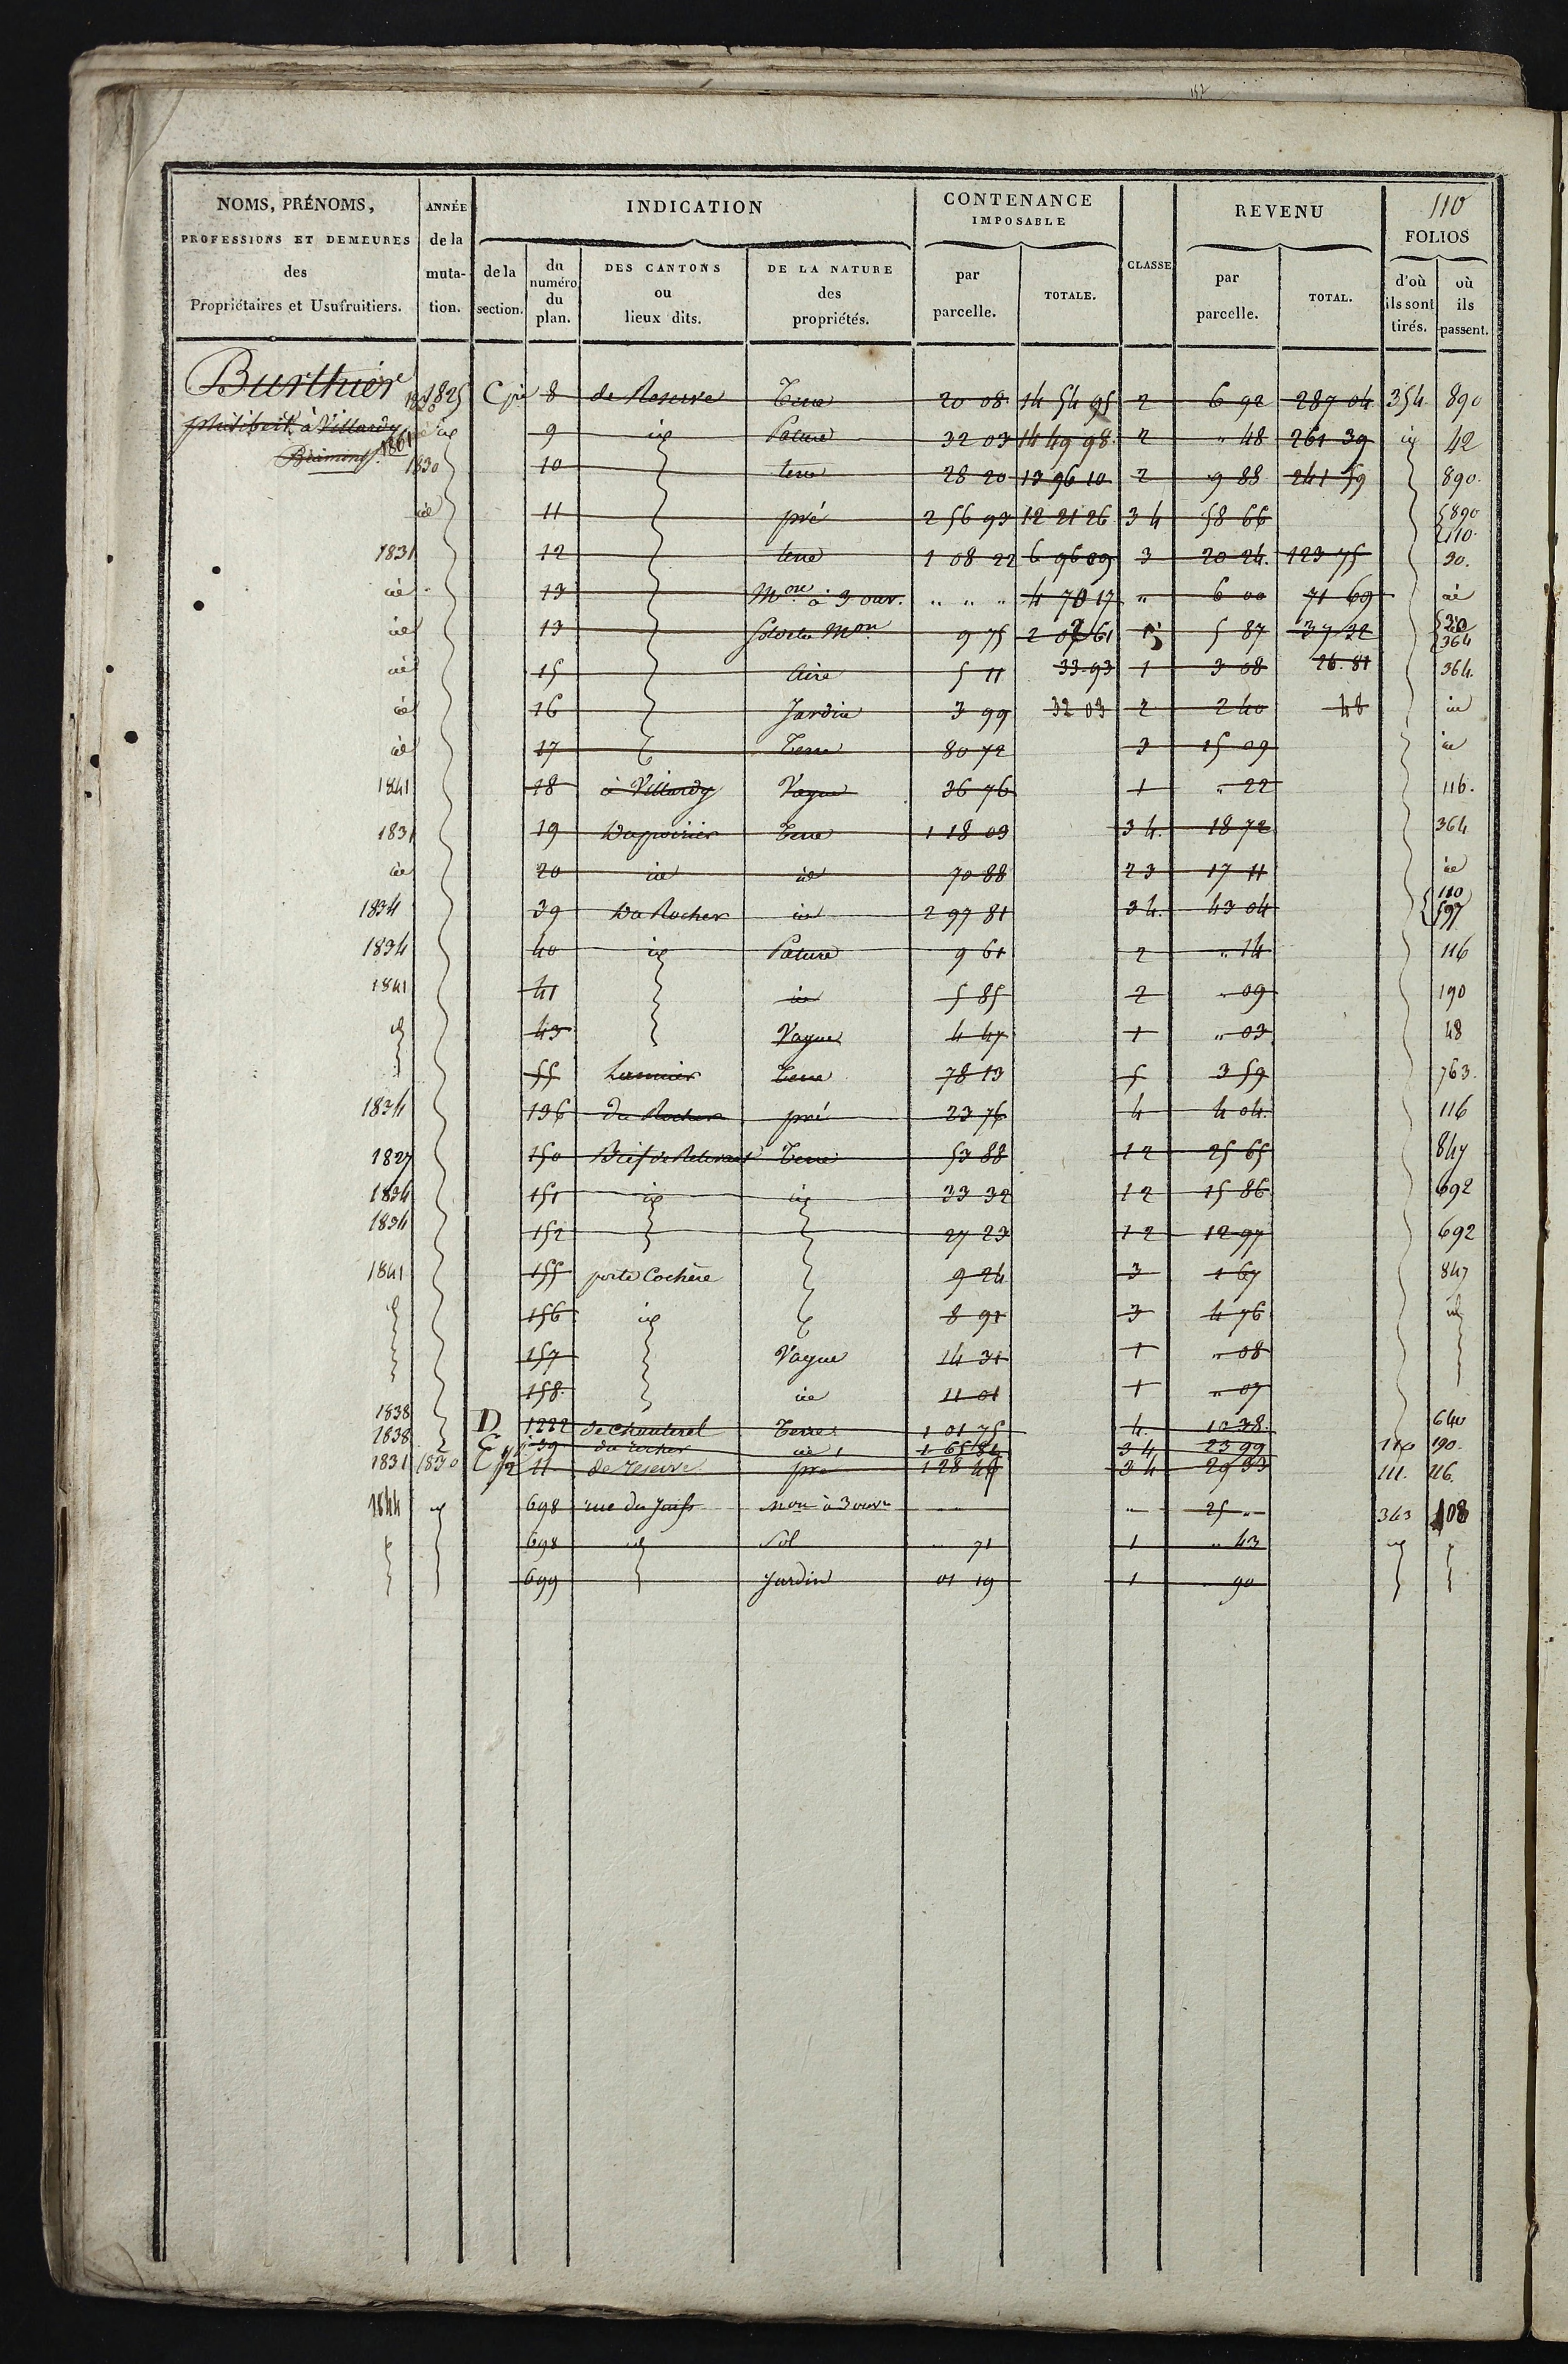 152
NOMS, PRÉNOMS, PROFESSIONS ET DEMEURES des Propriétaires et Usufruitiers.
ANNÉE de la mutation.
INDICATION
de la section.
du numéro du plan.
DES CANTONS ou lieux dits.
DE LA NATURE des propriétés.
CONTENANCE IMPOSABLE
par parcelle.
TOTALE.
CLASSE
REVENU
par parcelle.
TOTAL.
110
FOLIOS
d'où ils sont tirés.
où ils passent.
Burthier
philibert à Villardy
1861
1825 C 8 de Reserve Terre 20 08 14 54 95 2 6 92 287 04 354 890
id 9 id Pature 32 03 14 49 98 2 " 48 261 39 id 42
1830 10 terre 28 20 13 96 10 2 9 88 241 59 890.
id 11 pré 2 56 93 12 21 26 3 4 58 66 890 110.
1831 12 terre 1 08 22 6 96 09 3 20 24. 123 75 30.
id 13 Mon à 3 ouv. " " " 4 70 17 " 6 00 71 69 id
id 13 Sol de la Mon 9 75 2 61 5 87 37 32 364
id 15 Aire 5 11 33 93 1 3 08 26. 81 364.
id 16 Jardin 3 99 32 03 2 2 40 48 id
id 17 Terre 80 72 3 15 09 id
1841 18 à Villardy Vague 36 76 1 " 22 116.
1831 19 Terre 1 18 03 3 4. 18 72 364
id 20 id id 70 88 2 3 17 11 id
1834 39 Du Rocher id 2 97 81 3 4. 43 04 110 597
1834 40 id Pature 9 61 2 " 14 116
1841 41 id 5 85 2 " 09 190
id 43 Vague 4 47 1 " 03 48
55 Terre 78 13 5 3 59 763.
1834 136 Du Rocher pré 23 76 4 4 04. 116
1827 150 Terre 53 88 1 2 25 65 847
1834 151 id id 33 32 1 2 15 86 692
1834 152 27 23 1 2 12 97 692
1841 155 porte Cochère 9 24 3 1 67 847
id 156 id 8 91 3 4 76 id
157 Vague 14 31 1 " 08
158. id 11 01 1 " 07
1838 D 1222 de Chanterel Terre 1 01 75 4. 10 38. 640
1838 E 39 du rocher id 1 65 81 3 4 23 99 110 190.
1831 1830 11 de reserve pré 1 28 46 3 4 29 33 111. 116.
1844 id 698 rue du Juifs mon à 3 ouv " 25 " 363 108
698 id Sol " 71 1 " 43 id
699 Jardin 01 19 1 90